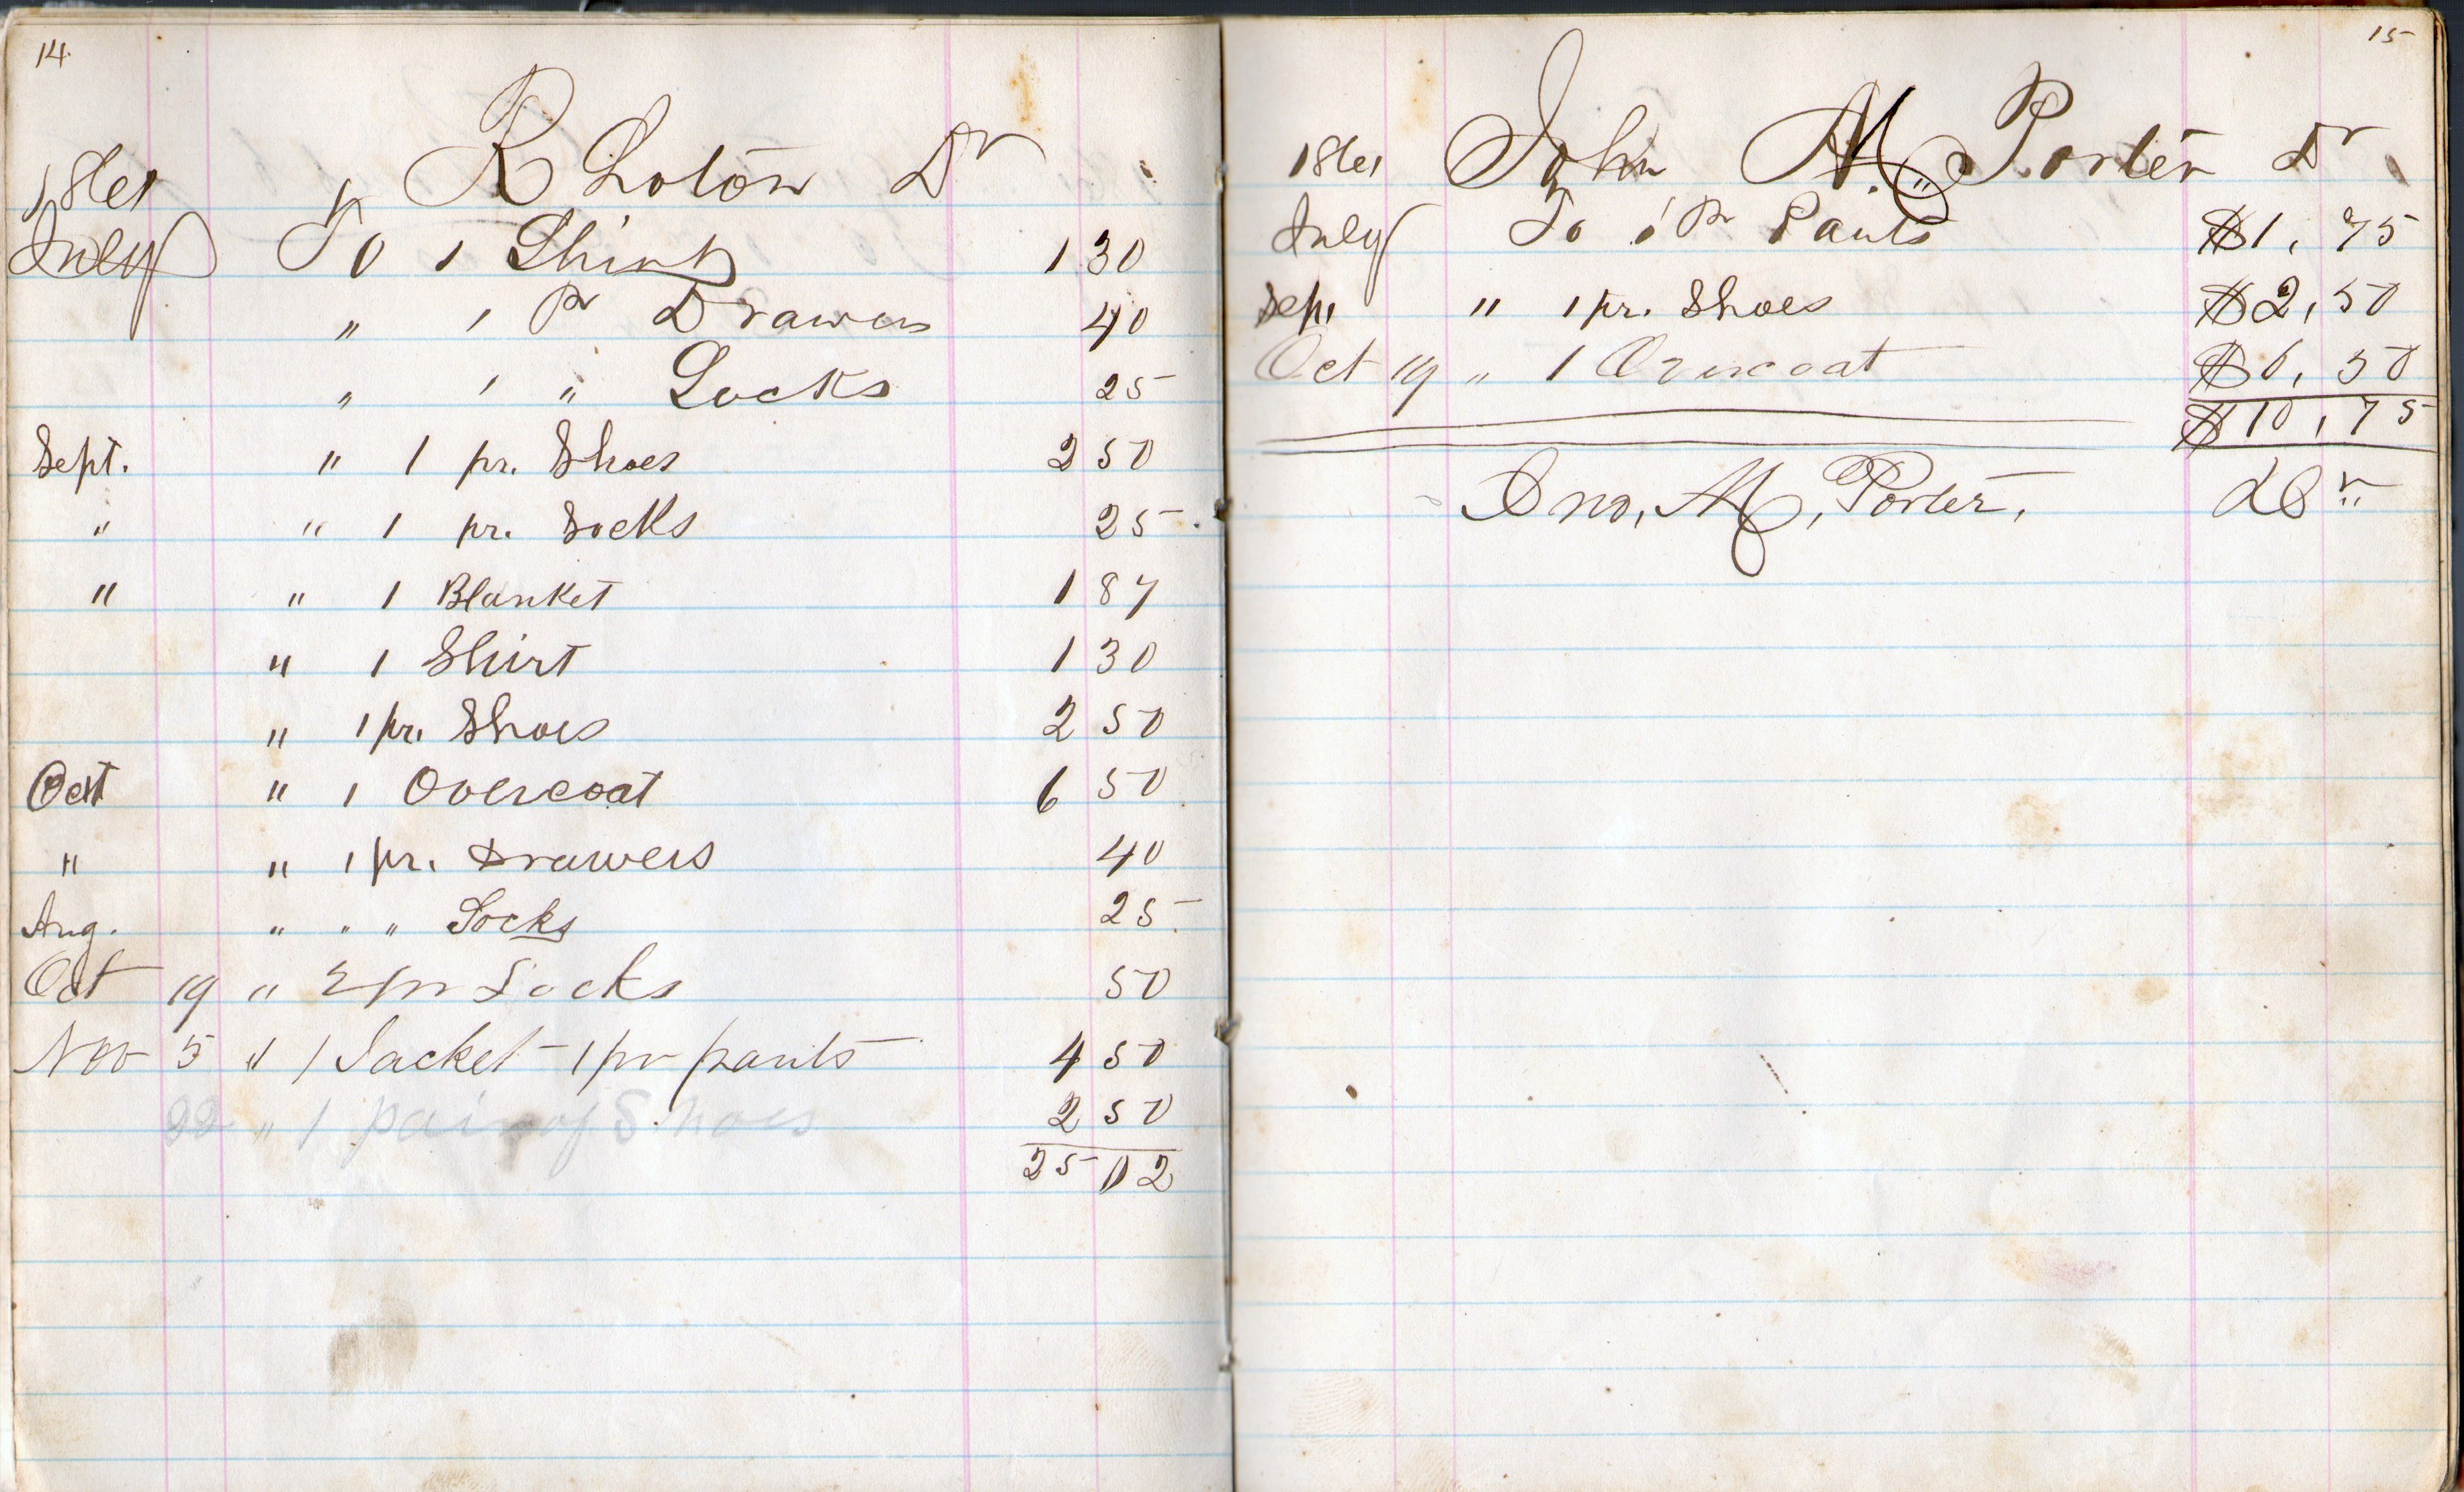 14
R Loton Dr
1861
July To 1 Shirt 1 30
" 1 Pr Drawers 40
" 1 " Socks 25
Sept. " 1 pr. Shoes 2 50
" " 1 pr. Socks 25
" " 1 Blanket 1 87
" 1 Shirt 1 30
" 1 pr. Shoes 2 50
Oct " 1 Overcoat 6 50
" " 1 pr. Drawers 40
Aug. " " " Socks 25
Oct 19 " 2 pr Socks 50
Nov 5 " 1 Jacket 1 pr pants 4 50
22 " 1 pair of Shoes 2 50
25 02
15
1861 John M. Porter Dr
July To 1 Pr Pants $1, 75
Sep, " 1 pr. Shoes $2, 50
Oct 19 " 1 Overcoat $6, 50
$10, 75
Jno, M, Porter, Dr